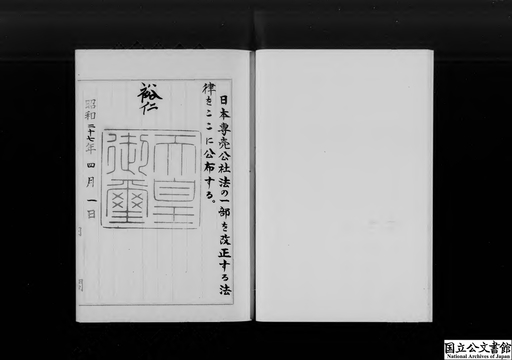 日本専売公社法の一部を改正する法
律をここに公布する。
裕仁
天皇
御璽
昭和三十七年四月一日
国立公文書館
National Archives of Japan